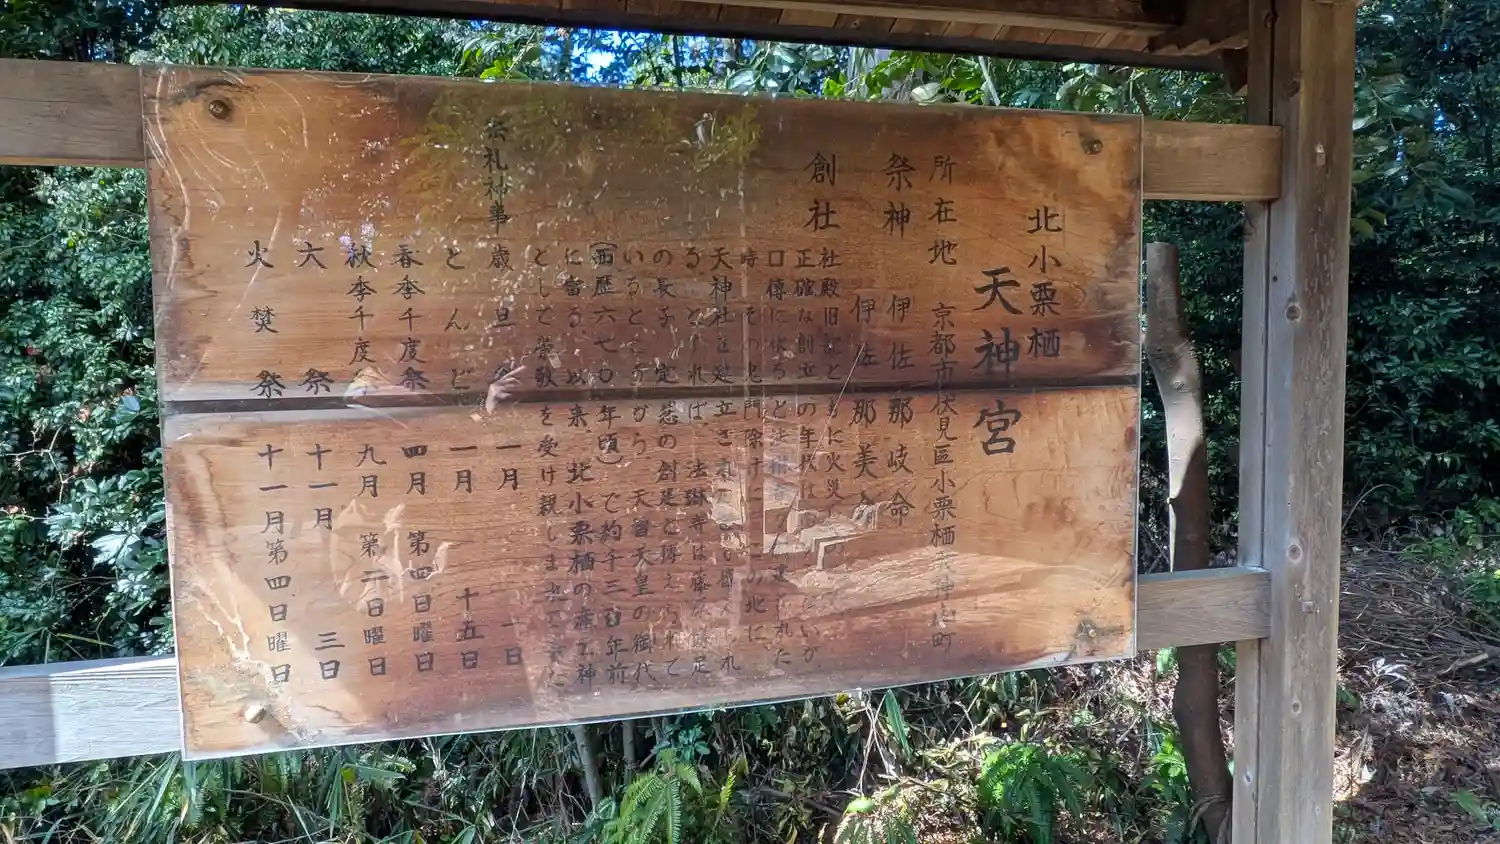 北小栗栖
天神宮
所在地　京都市伏見區小栗栖天神山町
祭神　伊佐那岐命
伊佐那美命
創社　社殿旧記とともに火災
正確な創世の年代は
口傳に依ると
時、その鬼門除けこの地に、
天神社を建立され
る。と れば、法琳寺は
の長子、定慧の創建と傳えられて
いるところから、天智天皇の御代
(西歴六七〇年頃)で約千三百年前
に當る。以来、北小栗栖の産土神
として崇敬を受け親しま
祭礼神事　歳旦祭　一月　一日
とんど　一月　十五日
春季千度祭　四月　第四日曜日
秋季千度祭　九月　第二日曜日
六祭　十一月　三日
火焚祭　十一月第四日曜日